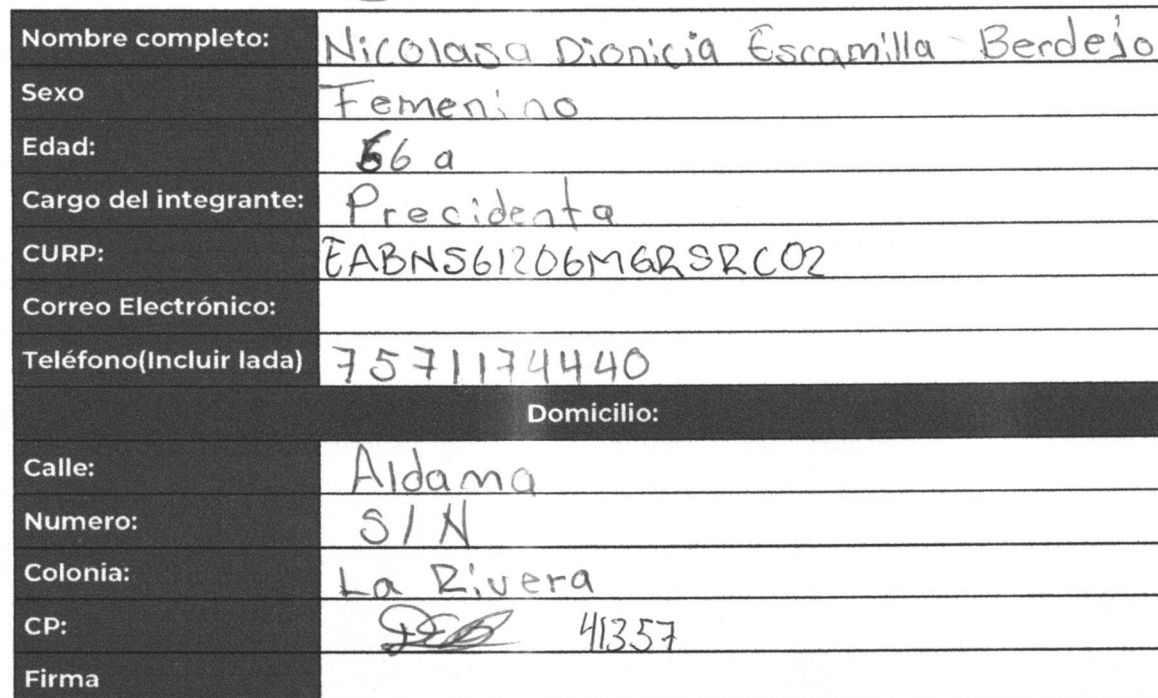 Nombre completo: Nicolasa Dionicia Escamilla Berdejo
Sexo Femenino
Edad: 66 a
Cargo del integrante: Precidenta
CURP: EABN561206MGRSRC02
Correo Electrónico:
Teléfono(Incluir lada) 7571174440
Domicilio:
Calle: Aldama
Numero: S/N
Colonia: La Rivera
CP: 41357
Firma